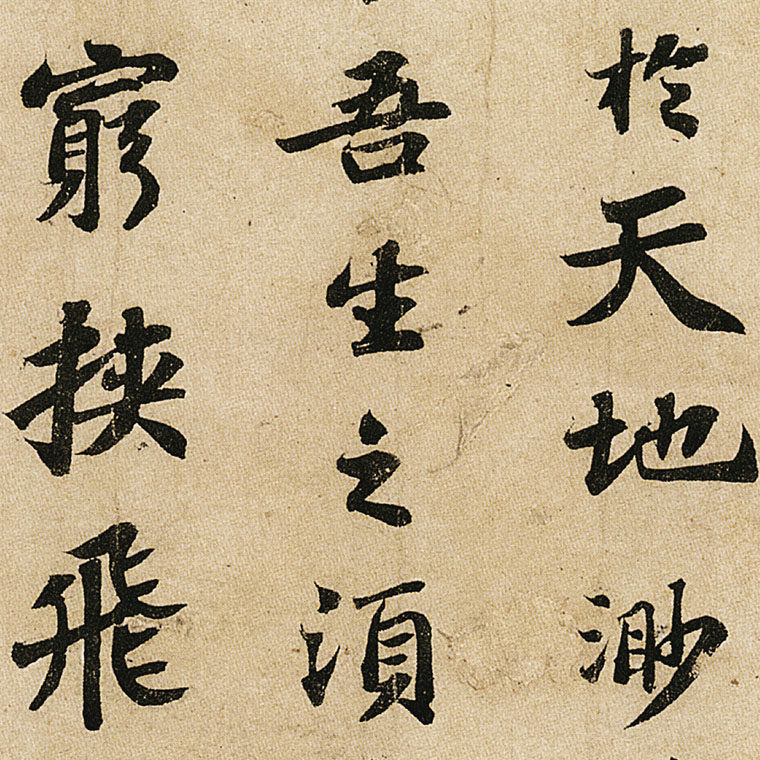 於天地渺
吾生之須
窮挾飛